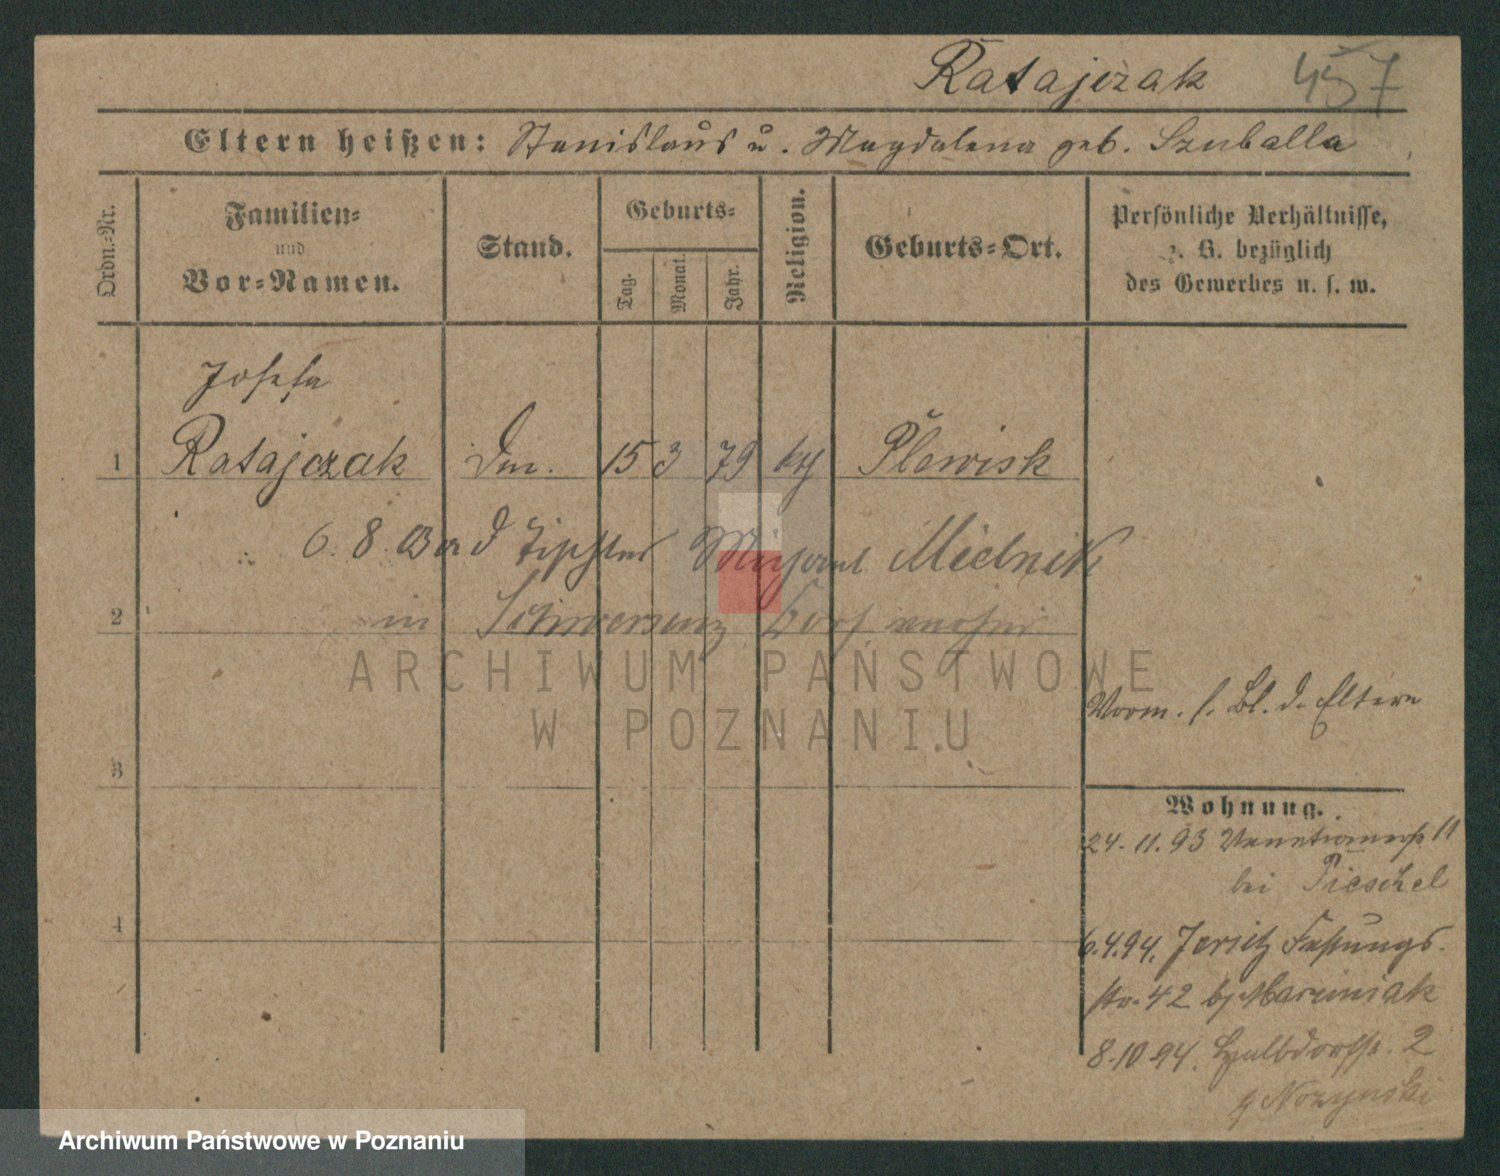 Ratajczak 457
Eltern heißen: Stanislaus u. Magdalena geb. Szuballa
Ordn.-Nr.
Familien-
und
Vor-Namen.
Stand.
Geburts-
Tag.
Monat.
Jahr.
Religion.
Geburts-Ort.
Persönliche Verhältnisse,
z. B. bezüglich
des Gewerbes u. s. w.
Josefa
1 Ratajczak Dm. 15 3 79 kth Plewisk
6. 8. Mielnik
2 in Schwersenz Dorf
ARCHIWUM PAŃSTWOWE
W POZNANIU
Vorm. s. Bl. d. Eltern
3
Wohnung.
24. 11. 93 11
bei Pieschel
4
6.4.94. Jersitz Festungs-
str. 42 b/
8.10.94. Halbdorfstr. 2
Archiwum Państwowe w Poznaniu